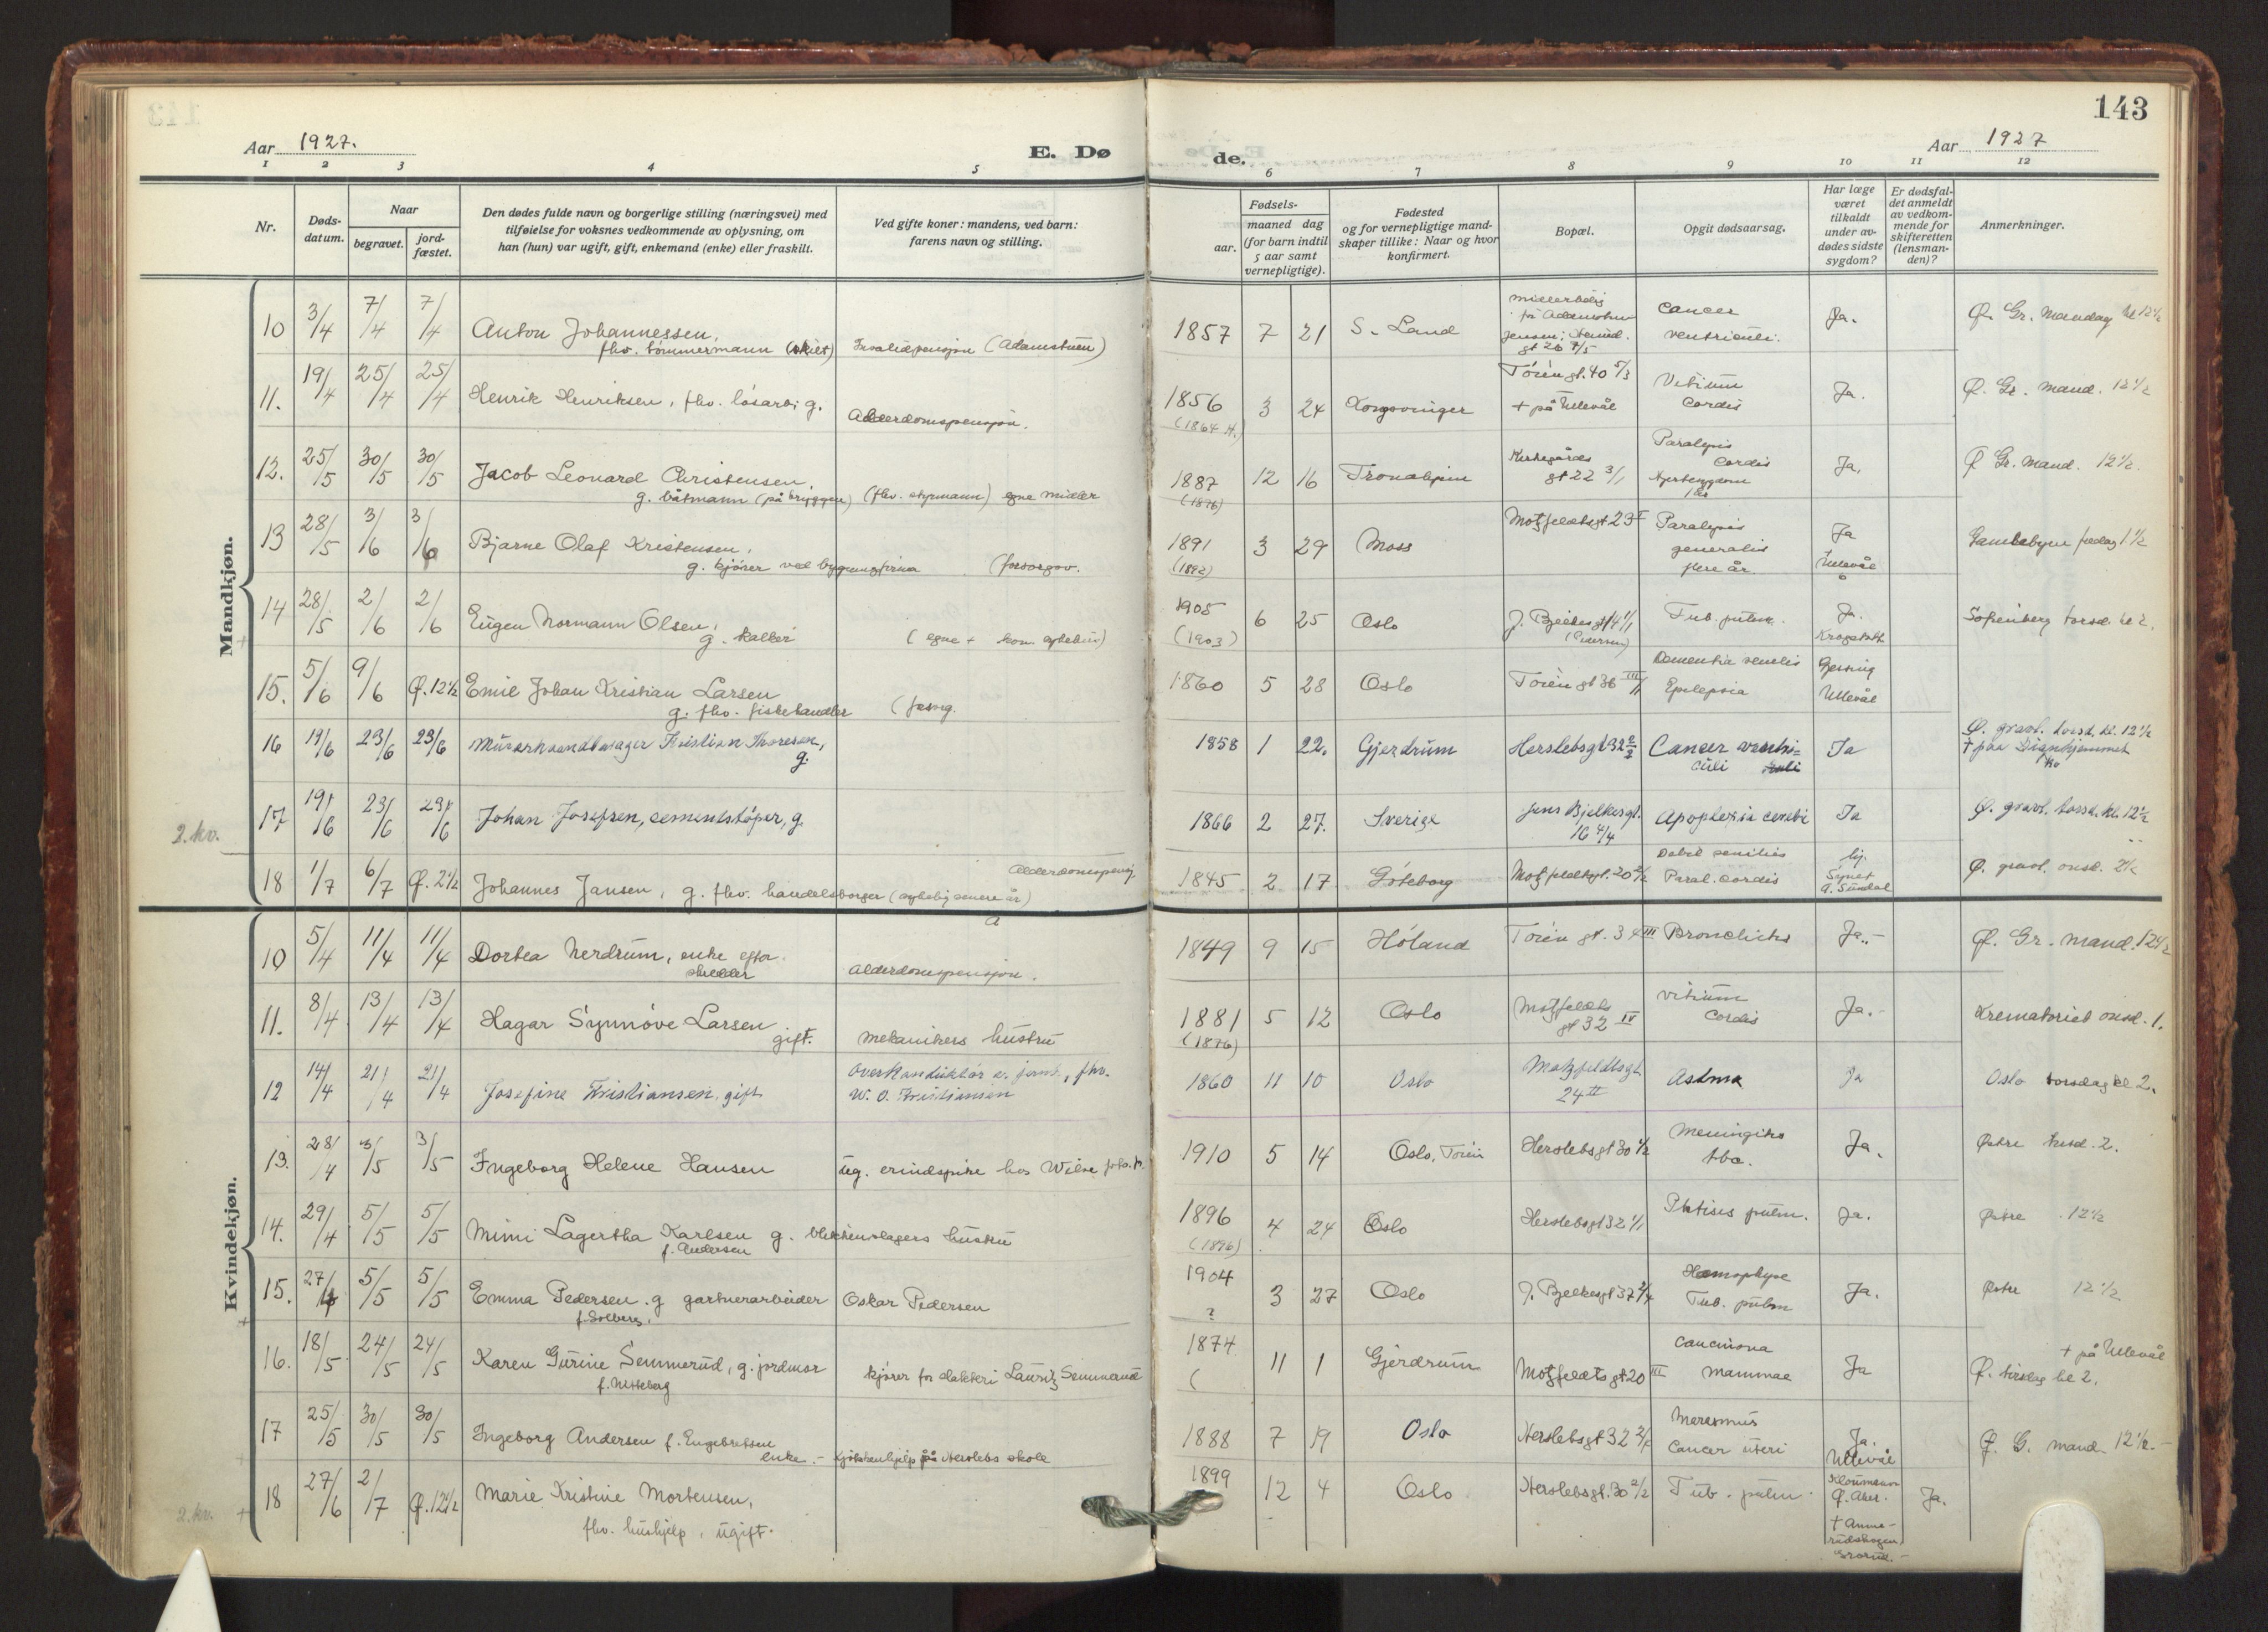 143
Aar 1927.
E. Dø
de.
Aar 1927
1 2 3 4 5 6 7 8 9 10 11 12
Nr.
Døds-
datum.
Naar
begravet.
jord-
fæstet.
Den dødes fulde navn og borgerlige stilling (næringsvei) med
tilføielse for voksnes vedkommende av oplysning, om
han (hun) var ugift, gift, enkemand (enke) eller fraskilt.
Ved gifte koner: mandens, ved barn:
farens navn og stilling.
Fødsels-
aar.
maaned dag
(for barn indtil
5 aar samt
vernepligtige).
Fødested
og for vernepligtige mand-
skaper tillike: Naar og hvor
konfirmert.
Bopæl.
Opgit dødsaarsag.
Har læge
været
tilkaldt
under av-
dødes sidste
sygdom?
Er dødsfal-
det anmeldt
av vedkom-
mende for
skifteretten
(lensman-
den)?
Anmerkninger.
Mandkjøn.
10 3/4 7/4 7/4 Anton Johannessen, 1857 7 21 S. Land Cancer Ja. Ø. Gr. Mandag kl 12 1/2
fhv. tømmermann (skilt) Invalidepensjon (Adamstuen) ventriculi.
11. 19/4 25/4 25/4 Henrik Henriksen, fhv. løsarb; g. Alderdomspensjon. 1856 3 24 Kongsvinger Tøiengt. 40 5/3 Vitium Ja. Ø. Gr. mand. 12 1/2
(1864 + på Ullevål Cordis
12. 25/5 30/5 30/5 Jacob Leonard Christensen, 1887 12 16 Trondhjem Kirkegårds Paralysis Ja. Ø Gr. mand. 12 1/2.
g. båtmann (på bryggen) (fhv. styrmann) egne midler (1876) gt 22 3/1 Cordis
13 28/5 3/6 3/6 Bjarne Olaf Kristensen, 1891 3 29 Moss Motzfeldtsgt 23 I Paralysis Ja Gamlebyen fredag 1 1/2
g. kjører ved bygningsfirma (forsorgsv. (1892) generalis Ullevål
flere år
14 28/5 2/6 2/6 Eugen Normann Olsen, 1905 6 25 Oslo J. Bjelkesgt 14 1/1 Tub. pulm. Ja. Sofienberg torsd. kl 2.
(1903) Krogstøtt
15. 5/6 9/6 Ø. 12 1/2 Emil Johan Kristian Larsen 1860 5 28 Oslo Tøiengt 36 III/11 Dementia senilis
g. fhv. fiskehandler (forsorg. Epilepsia Ullevål
16 19/6 23/6 23/6 Murerhaandlanger Kristian Thoresen, g. 1858 1 22. Gjerdrum Herslebsgt 32 2/2 Cancer ventri-
culi Ja Ø. gravl. torsd. kl. 12 1/2
17 19/6 23/6 23/6 Johan Josefsen, cementstøper, g. 1866 2 27. Sverige Jens Bjelkesgt. 16 4/4 Apoplexia cerebri Ja Ø. gravl. torsd. kl. 12 1/2
2. kv.
18 1/7 6/7 Ø. 2 1/2 Johannes Jansen, g. fhv. handelsborger Alderdomspensj 1845 2 17 Göteborg Motzfeldtsgt. 20 2/2 Paral. cordis Ø. gravl. onsd. 2 1/2
Kvindekjøn.
10 5/4 11/4 11/4 Dortea Nerdrum, enke efter Alderdomspensjon. 1849 9 15 Høland Tøien gt. 34 III Bronchitis Ja. Ø. Gr. mand. 12 1/2
skredder
11. 8/4 13/4 13/4 Hagar Synnøve Larsen 1881 5 12 Oslo Motzfeldts vitium Ja. Krematoriet onsd. 1.
gift. mekanikers hustru (1876) gt 32 IV Cordis
12 14/4 21/4 21/4 Josefine Kristiansen, gift Overkonduktør v. jernb., fhv. 1860 11 10 Oslo Motzfeldtsgt. Astma Ja Oslo torsdag kl 2.
W. O. Kristiansen 24 II
13. 28/4 3/5 3/5 Ingeborg Helene Hansen ug. erindspike hos 1910 5 14 Oslo, Tøien Herslebsgt 30 1/2 Meningitis Ja. Østre tirsd. 2.
tbc.
14. 29/4 5/5 5/5 Mimi Lagertha Karlsen g. blikkenslagers hustru 1896 4 24 Oslo Herslebsgt 32 1/1 Phtisis pulm. Ja. Østre 12 1/2
f. Andersen (1896)
15. 27/4 5/5 5/5 Emma Pedersen g gartnerarbeider Oskar Pedersen 1904 3 27 Oslo J. Bjelkesgt 37 2/4 Hæmoptyse Ja. Østre 12 1/2
f. Solberg. ? Tub. pulm
16. 18/5 24/5 24/5 Karen Gurine Semmerud, g. jordmor 1874 11 1 Gjerdrum Motzfeldtsgt 20 III mammae Ja + på Ullevål
kjører for slakteri Lauritz Semmerud Ø. tirsdag kl 2.
17 25/5 30/5 30/5 Ingeborg Andersen f. Engebretsen 1888 7 19 Oslo Herslebsgt 32 Marasmus Ja. Ø. G. mand 12 1/2.
enke. - kjøkkenhjelp på Herslebs skole Cancer uteri Ullevål
2. kv.
18 27/6 2/7 Ø. 12 1/2 Marie Kristine Mortensen, 1899 12 4 Oslo Herslebsgt. 30 2/2 Tub. pulm. Ø. Aker. Ja.
fhv. hushjelp, ugift.
Grorud.